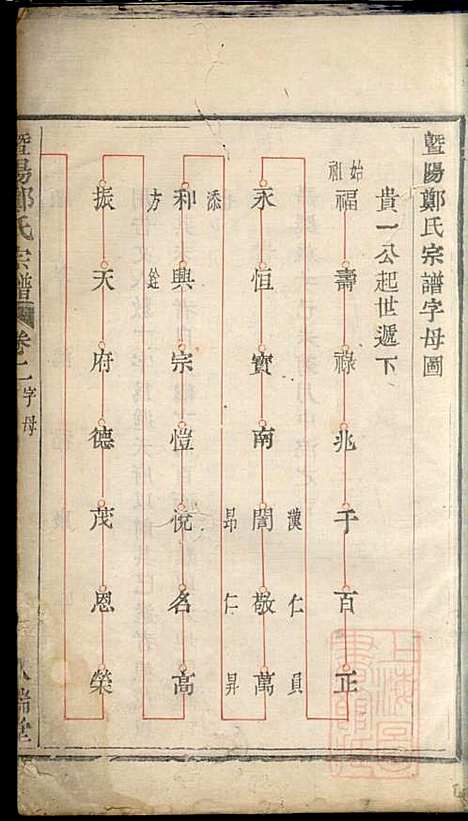 暨陽鄭氏宗譜字母圖
貴一公起世遞下
始祖
福壽祿兆千百正
漢仁員
永恒寶南誾敬萬
昂仁昇
添
和興宗愷悅名高
方
銓
振天府德茂恩榮
暨陽鄭氏宗譜
卷之一字母
瑞堂